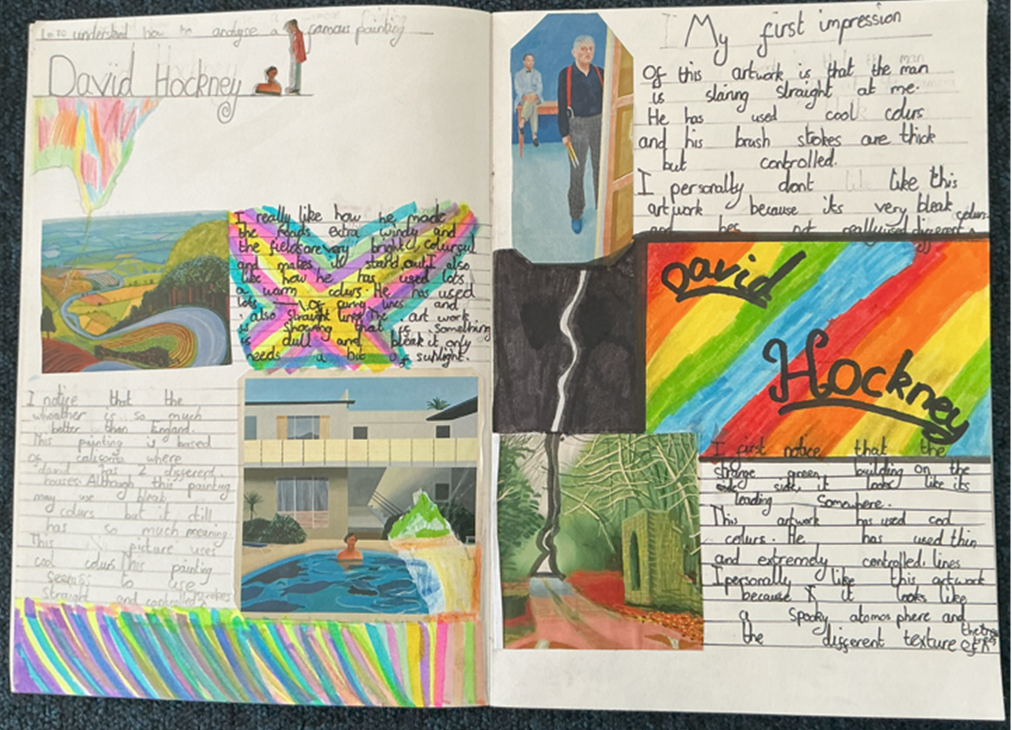 to understand how to analyse a famous painting
David Hockney
I really like how he made
the roads extra windy and
the fields are very bright colurful
and makes it stand out. I also
like how he has used lots
a warm colurs. He has used
lots of curvy lines and
also straight lines. The art work
is showing that is something
is dull and bleak it only
needs a bit of sunlight.
I notice that the
wheather is so much
better than England.
This painting is based
of where
david has 2 different
houses. Although this painting
may use bleak
colurs but it still
has so much meaning
This picture uses
cool colurs this painting
seems to use
straight and controlled strokes
My first impression
Of this artwork is that the man
is staring straight at me.
He has used cool colurs
and his brush strokes are thick
but controlled.
I personally dont like this
artwork because its very bleak
and has not really used different colurs
David
Hockney
I first notice that the
strange green building on the
side, it looks like its
leading somewhere.
This artwork has used cool
colurs. He has used thin
and extremely controlled lines
I personally like this artwork
because it looks like
a spooky atamosphere and
the different texture of the trees